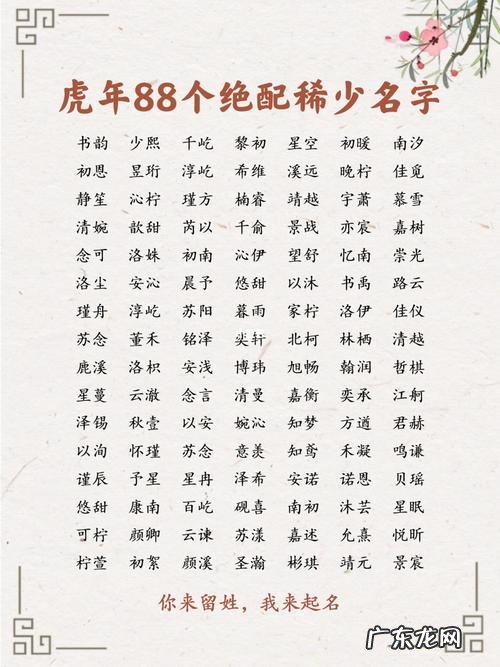 虎年88个绝配稀少名字
书韵 少熙 千屹 黎初 星空 初暖 南汐
初恩 昱珩 淳屹 希维 溪远 晚柠 佳觅
静笙 沁柠 瑾方 楠睿 靖越 宇萧 慕雪
清婉 歆甜 芮以 千俞 景战 亦宸 嘉树
念可 洛姝 初南 沁伊 望舒 忆南 崇光
洛尘 安沁 晨予 悠甜 以沐 书禹 路云
瑾舟 淳屹 苏阳 暮雨 家柠 洛伊 佳仪
苏念 董禾 铭泽 奕轩 北柯 林栖 清越
鹿溪 洛枳 安浅 博玮 旭畅 翰润 哲棋
星蔓 云澈 念言 清曼 嘉衡 奕承 江舸
泽锡 秋壹 以安 婉沁 知梦 方道 君赫
以洵 怀瑾 苏念 意羡 知鸢 禾凝 鸣谦
谨辰 予星 星冉 泽希 安诺 诺恩 贝瑶
悠甜 康南 百屹 砚喜 南初 沐芸 星眠
可柠 颜卿 云谏 苏漾 嘉述 允熹 悦昕
柠萱 初絮 颜溪 圣瀚 彬琪 靖元 景宸
你来留姓，我来起名
广东龙网